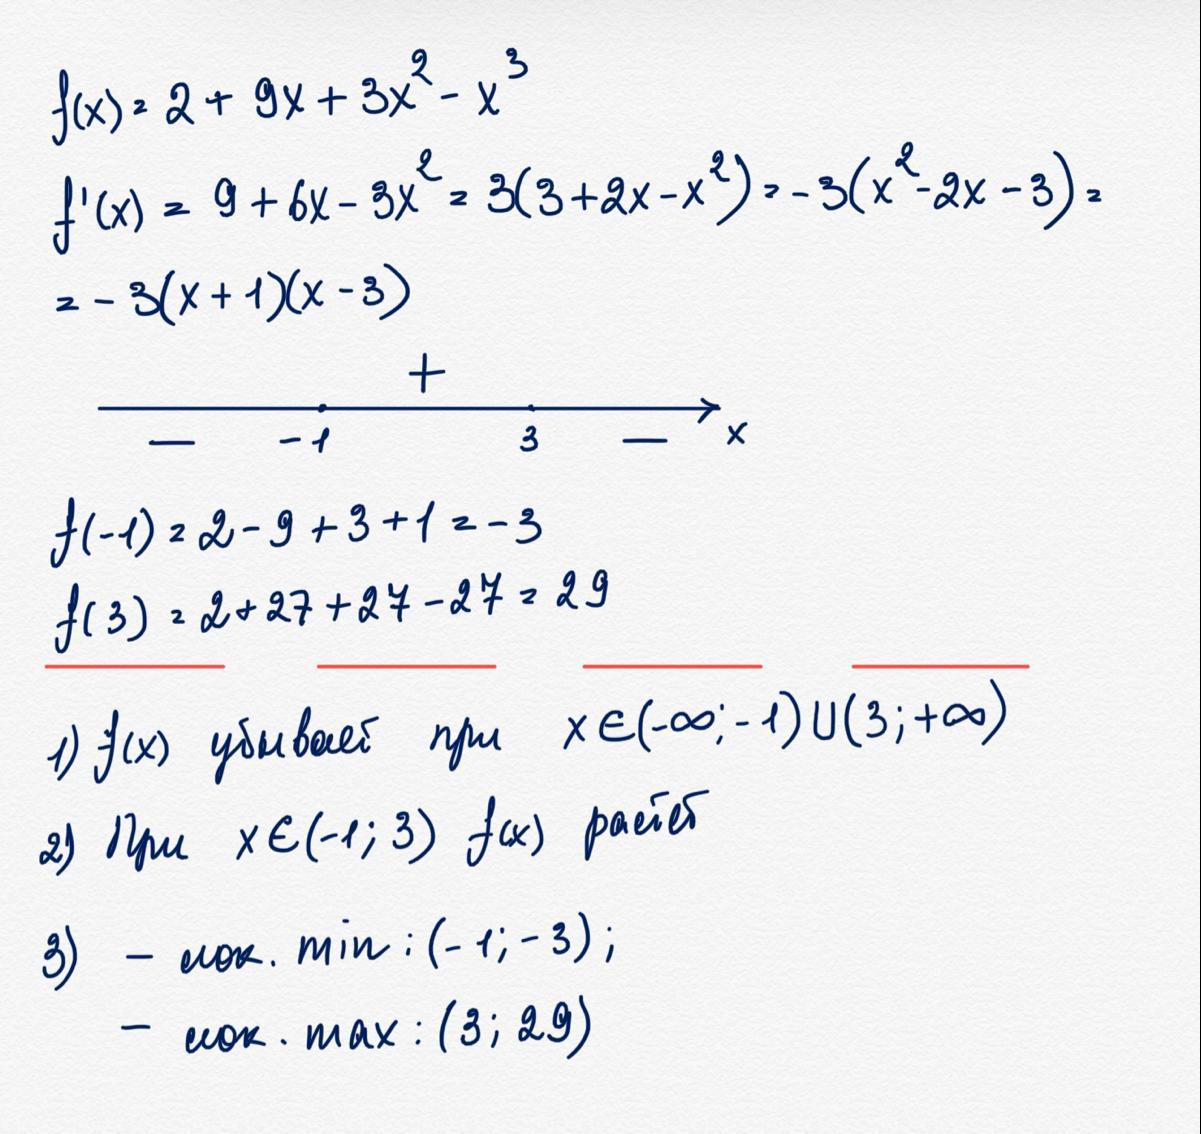 f(x) = 2 + 9x + 3x² - x³
f'(x) = 9 + 6x - 3x² = 3(3 + 2x - x²) = -3(x² - 2x - 3) =
= -3(x + 1)(x - 3)
+
— -1 3 — x
f(-1) = 2 - 9 + 3 + 1 = -3
f(3) = 2 + 27 + 27 - 27 = 29
1) f(x) убывает при x∈(-∞; -1)∪(3; +∞)
2) При x∈(-1; 3) f(x) растёт
3) - лок. min : (-1; -3);
- лок. max : (3; 29)